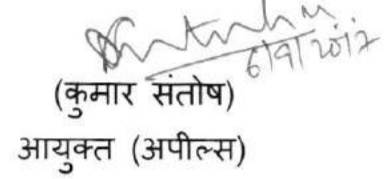 6/9/2017
(कुमार संतोष)
आयुक्त (अपील्स)